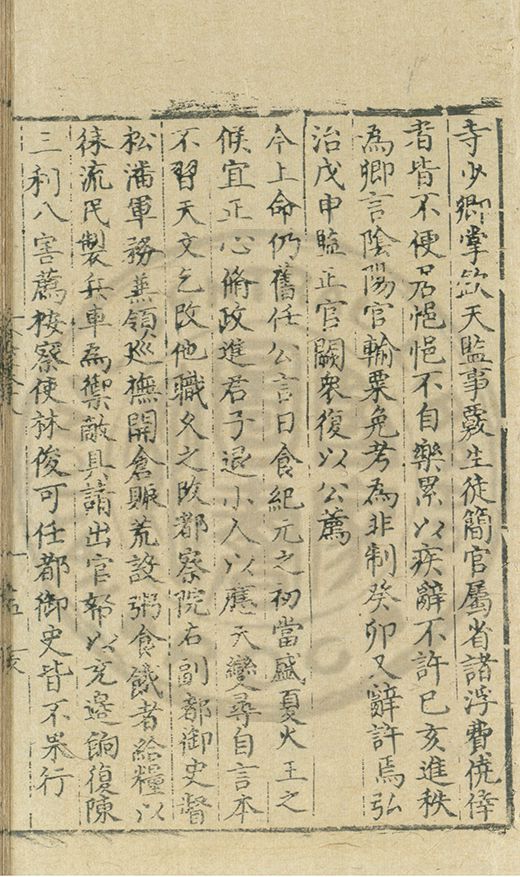 寺少卿掌欽天監事覈生徒簡官屬省諸浮費僥倖
者皆不便君悒悒不自樂累以疾辭不許已亥進秩
為卿言陰陽官輸粟免考為非制癸卯又辭許焉弘
治戊申監正官闕衆復以公薦
今上命仍舊任公言日食紀元之初當盛夏火王之
候宜正心脩政進君子退小人以應天變尋自言本
不習天文乞改他職久之改都察院右副都御史督
松潘軍務兼領巡撫開倉賑荒設粥食餓者給糧以
徠流民製兵車為禦敵具請出官帑以充邊餉復陳
三利八害薦按察使林俊可任都御史皆不果行